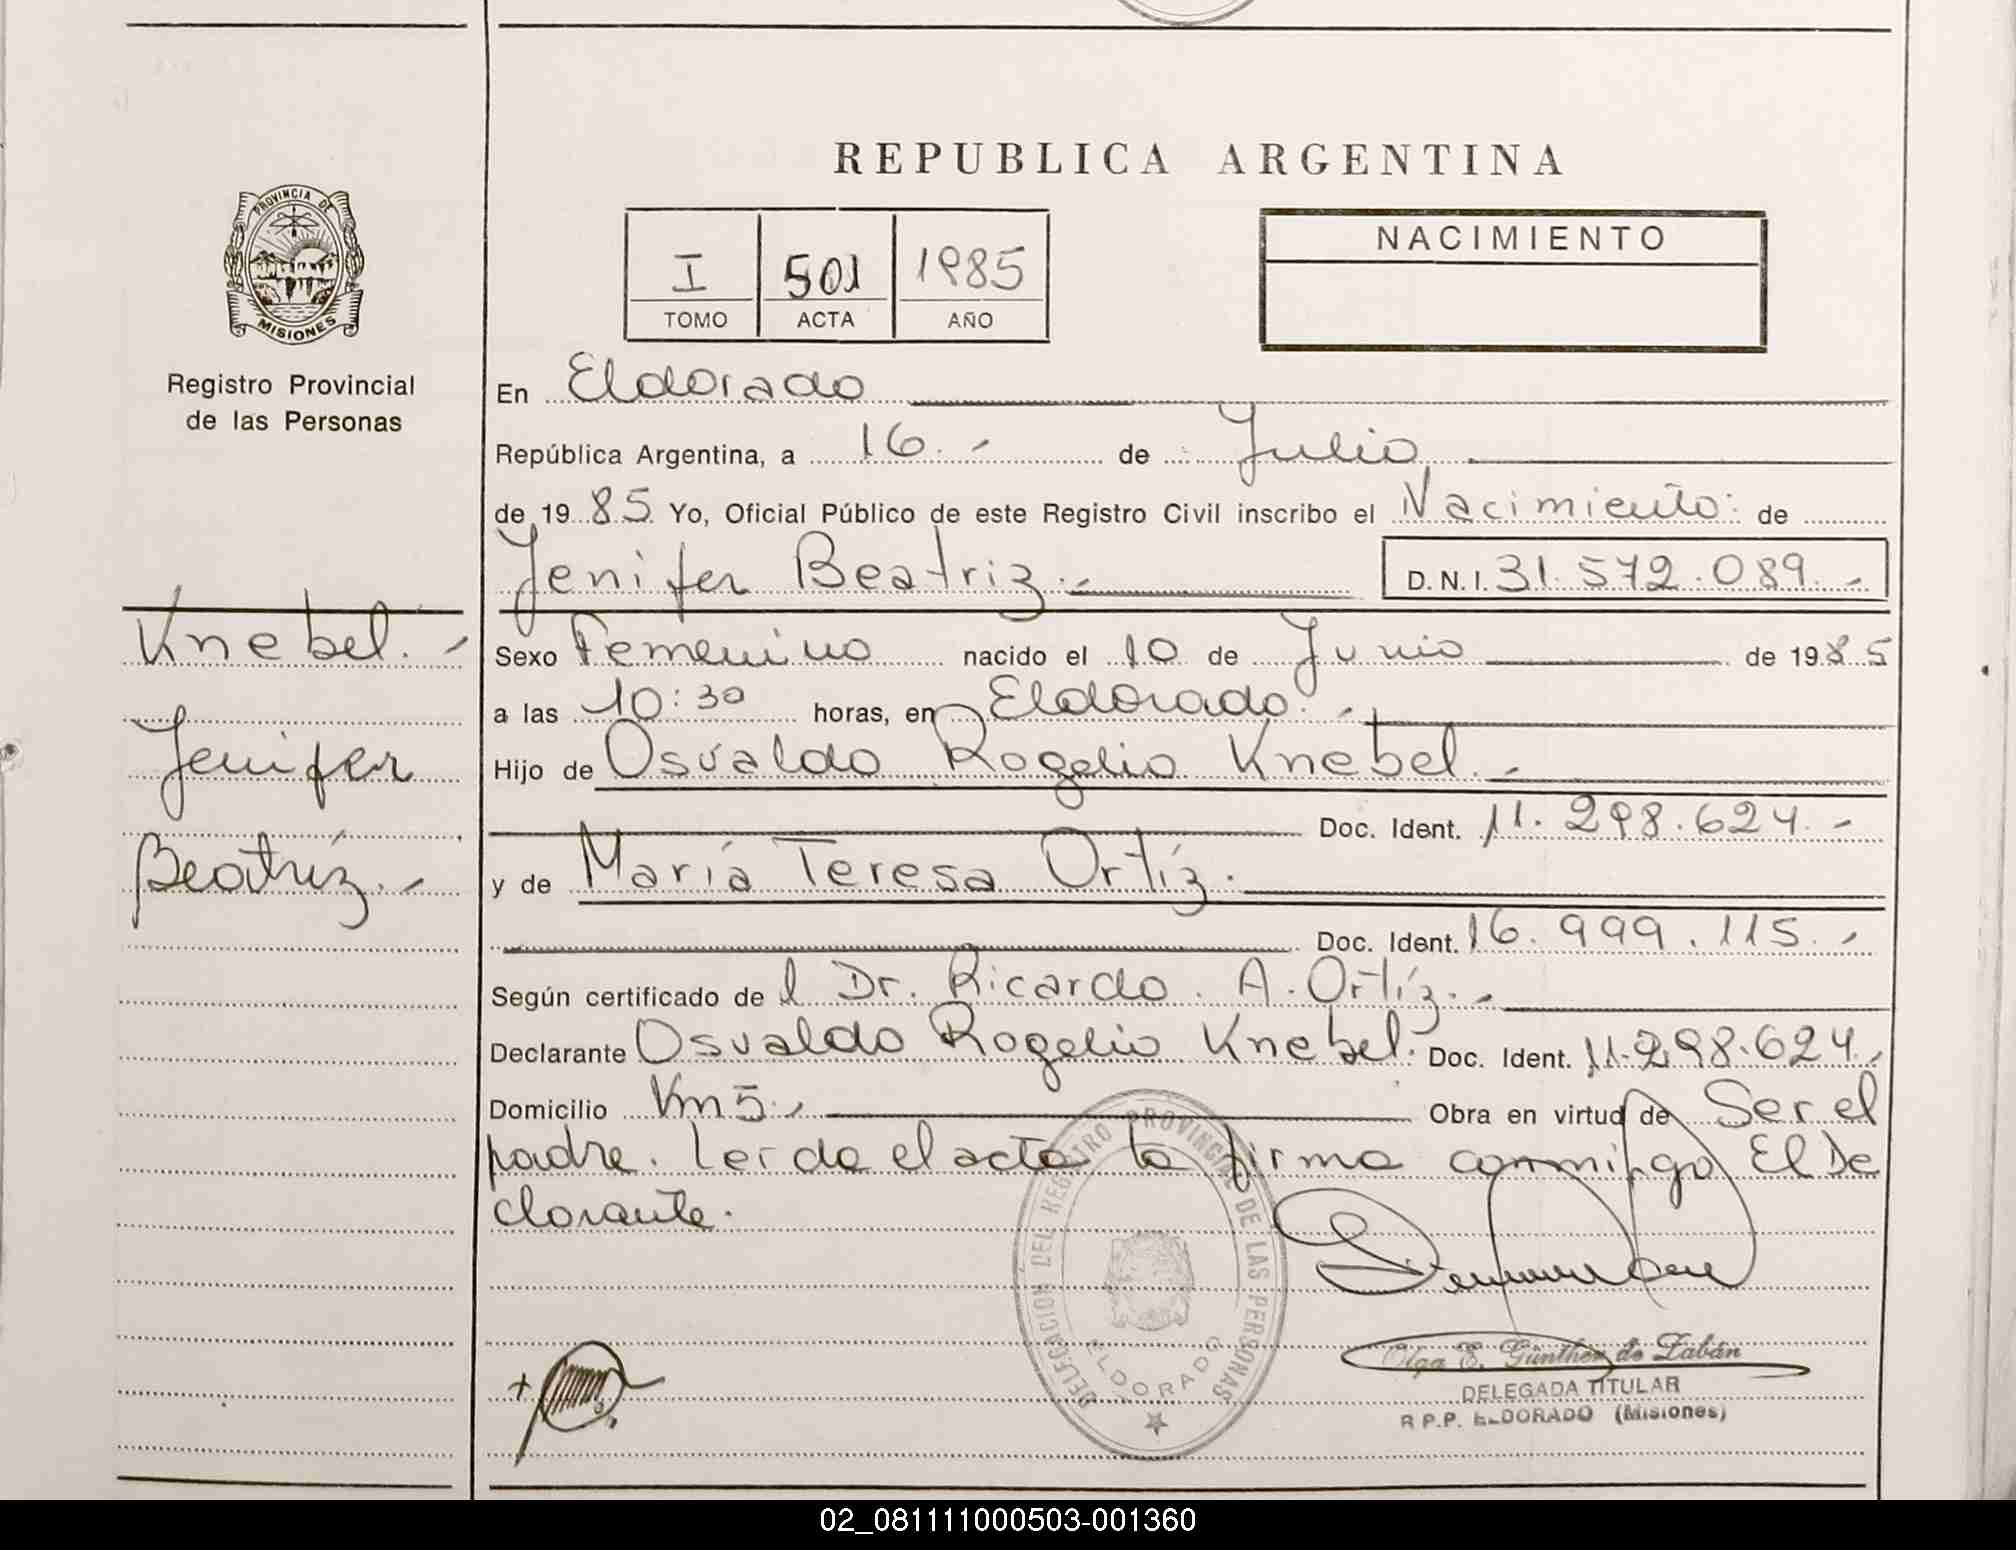 REPUBLICA ARGENTINA
PROVINCIA DE
MISIONES
Registro Provincial
de las Personas
I 501 1985
TOMO ACTA AÑO
NACIMIENTO
En Eldorado
República Argentina, a 16.- de Julio
de 1985 Yo, Oficial Público de este Registro Civil inscribo el Nacimiento: de
Jenifer Beatriz.- D.N.I. 31.572.089.-
Knebel.-
Jenifer
Beatríz.-
Sexo Femenino nacido el 10 de Junio de 1985
a las 10:30 horas, en Eldorado.-
Hijo de Osvaldo Rogelio Knebel.-
Doc. Ident. 11.298.624.-
y de María Teresa Ortíz.
Doc. Ident. 16.999.115.-
Según certificado de l Dr. Ricardo A. Ortíz.-
Declarante Osvaldo Rogelio Knebel. Doc. Ident. 11.298.624.-
Domicilio Km 5.- Obra en virtud de Ser el
padre. Leida el acta la firma conmigo El De
clarante.
DELEGACION DEL REGISTRO PROVINCIAL DE LAS PERSONAS
ELDORADO
Olga E. Günther de Zabán
DELEGADA TITULAR
R.P.P. ELDORADO (Misiones)
02_081111000503-001360